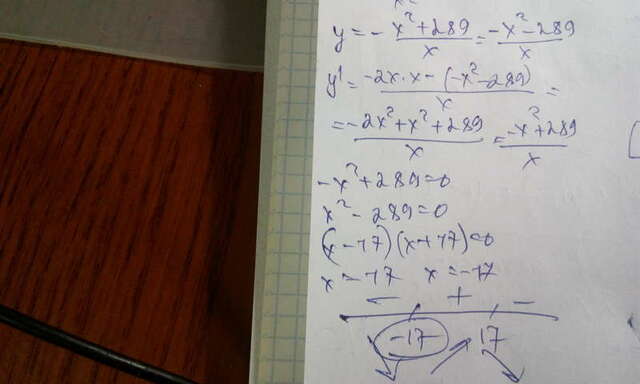 x²
y = - x²+289/x = -x²-289/x
y' = -2x·x-(-x²-289)/x =
= -2x²+x²+289/x = -x²+289/x
-x²+289=0
x²-289=0
(x-17)(x+17)=0
x=17 x=-17
- + -
-17 17